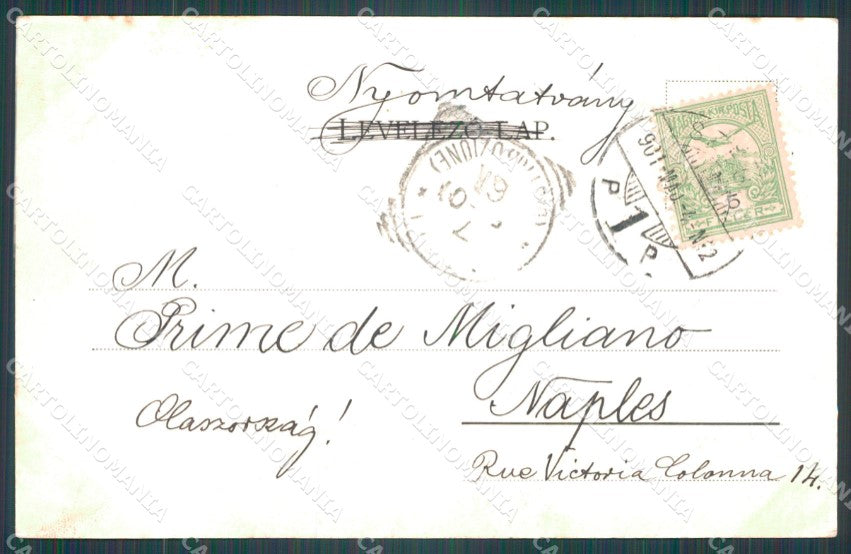 Nyomtatvány
LEVELEZŐ-LAP.
M.
Prime de Migliano
Naples
Olaszország!
Rue Victoria Colonna 14.
MAGYAR KIR. POSTA
P 1 P
901 MÁJ
CARTOLINOMANIA